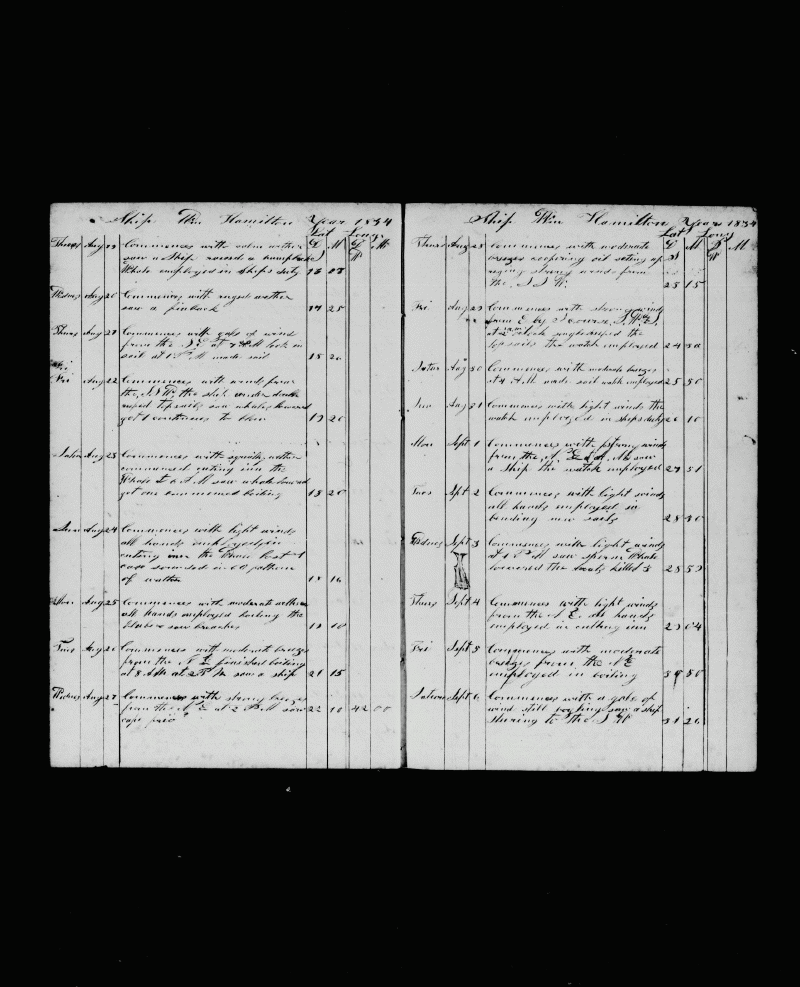 Ship Wm Hamilton Year 1834
Lat Long
D M D M
S W
Aug Commences with calm wether
saw a Ship raised a humpback
Whale employed in ships duty 16
Wednes Aug 20 Commences with ruged wether
saw a finback 17 25
Thurs Aug 21 Commences with gale of wind
from the S E at 7 PM took in
sail at 1 P M made sail 18 20
Fri
Fri Aug 22 Commences with winds from
the the ship under double
reefed topsails saw whales lowered
got 1 continues to blow 19 20
Satur Aug 23 Commences with squaly wether
commenced cuting inn the
Whale at 6 A M saw whale lowered
got one commenced boiling 18 20
Sun Aug 24 Commences with light winds
all hands employed in
cuting inn the Whale lost 1
cap sounded in 60 pathoms
of wather 18 16
Mon Aug 25 Commences with moderate wether
all hands employed boiling the
bluber saw breaches 19 10
Tues Aug 26 Commences with moderate breezes
from the N E finished boiling
at 8 AM at 2 P M saw a ship 21 15
Wednes Aug 27 Commences with strong breezes
from the N E at 2 P M saw 22 10 42 00
cape frio
Ship Wm Hamilton Year 1834
Lat Long
D M D M
S W
Thurs Aug 28 Commences with moderate
breezes coopering oil seting up
riging strong winds from
the S S W 23 15
Fri Aug 29 Commences with strong winds
from E by S course S W
at 2 clock single reefed the
topsails the watch employed 24 30
Satur Aug 30 Commences with moderate breezes
at 4 A.M made sail watch employed 25 50
Sun Aug 31 Commences with light winds the
watch employed in ships duty 26 10
Mon Sept 1 Commences with strong winds
from the N E at A. M. saw
a ship the watch employed 27 51
Tues Sept 2 Commences with light winds
all hands employed in
bending new sails 28 30
Wednes Sept 3 Commences with light winds
at 1 P M saw sperm Whale
lowered the boats killed 3 28 59
Thurs Sept 4 Commences with light winds
from the N E. all hands
employed in cutting inn 29 04
Fri Sept 5 Commences with moderate
breezes from the N E
employed in boiling 50
Saturn Sept 6 Commences with a gale of
wind still boiling saw a ship
stering to the S W 31 26